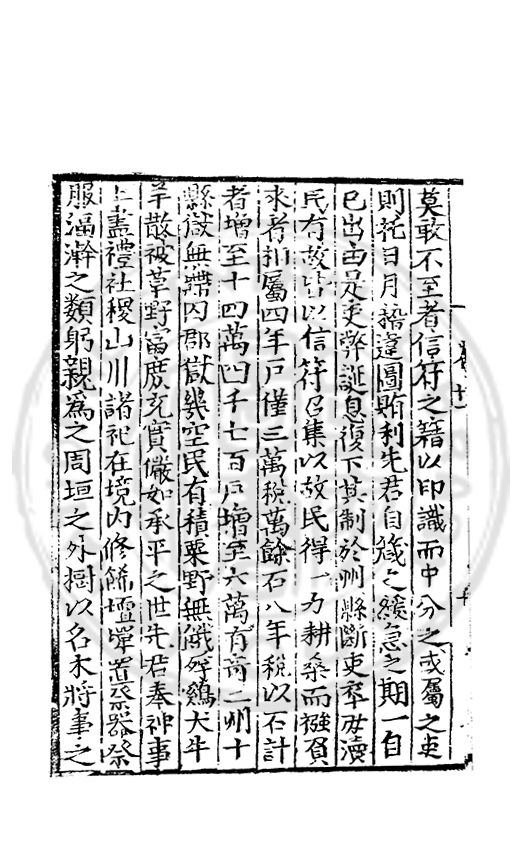 莫敢不至者信符之籍以印識而中分之或屬之吏
則託日月稽違圖賄利先君自籤之緩急之期一自
已出由是吏弊誕息復下其制於州縣斷吏卒毋瀆
民有故出以信符召集以故民得一力耕桑而襁負
來者相屬四年戶僅三萬稅萬餘石八年稅以石計
者增至十四萬四千七百戶增至六萬有奇二州十
縣獄無滯囚郡獄幾空民有積粟野無餓殍鷄犬牛
羊散被草野富庶充實儼如承平之世先君奉神事
上盡禮社稷山川諸祀在境内修餙壇墠置祭器祭
服滌濯之類躬親爲之周垣之外樹以名木將事之